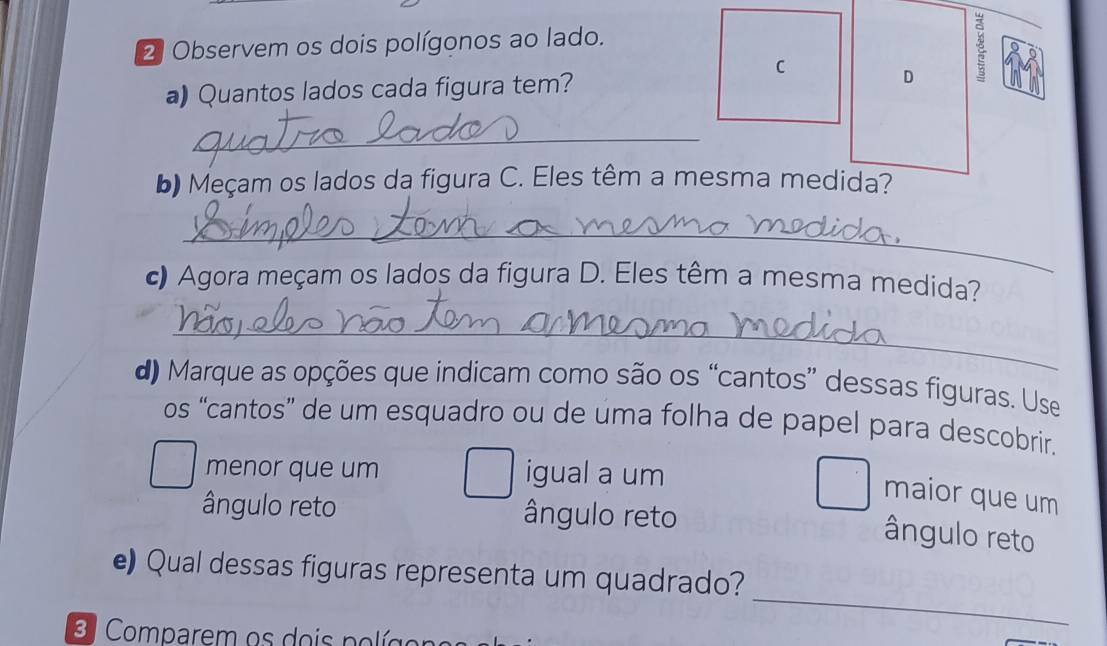 2 Observem os dois polígonos ao lado.
C
D
Ilustrações: DAE
a) Quantos lados cada figura tem?
quatro lados
b) Meçam os lados da figura C. Eles têm a mesma medida?
a mesma medida.
c) Agora meçam os lados da figura D. Eles têm a mesma medida?
não, eles não tem a mesma medida
d) Marque as opções que indicam como são os “cantos” dessas figuras. Use
os “cantos” de um esquadro ou de uma folha de papel para descobrir.
menor que um
ângulo reto
igual a um
ângulo reto
maior que um
ângulo reto
e) Qual dessas figuras representa um quadrado?
3 Comparem os dois